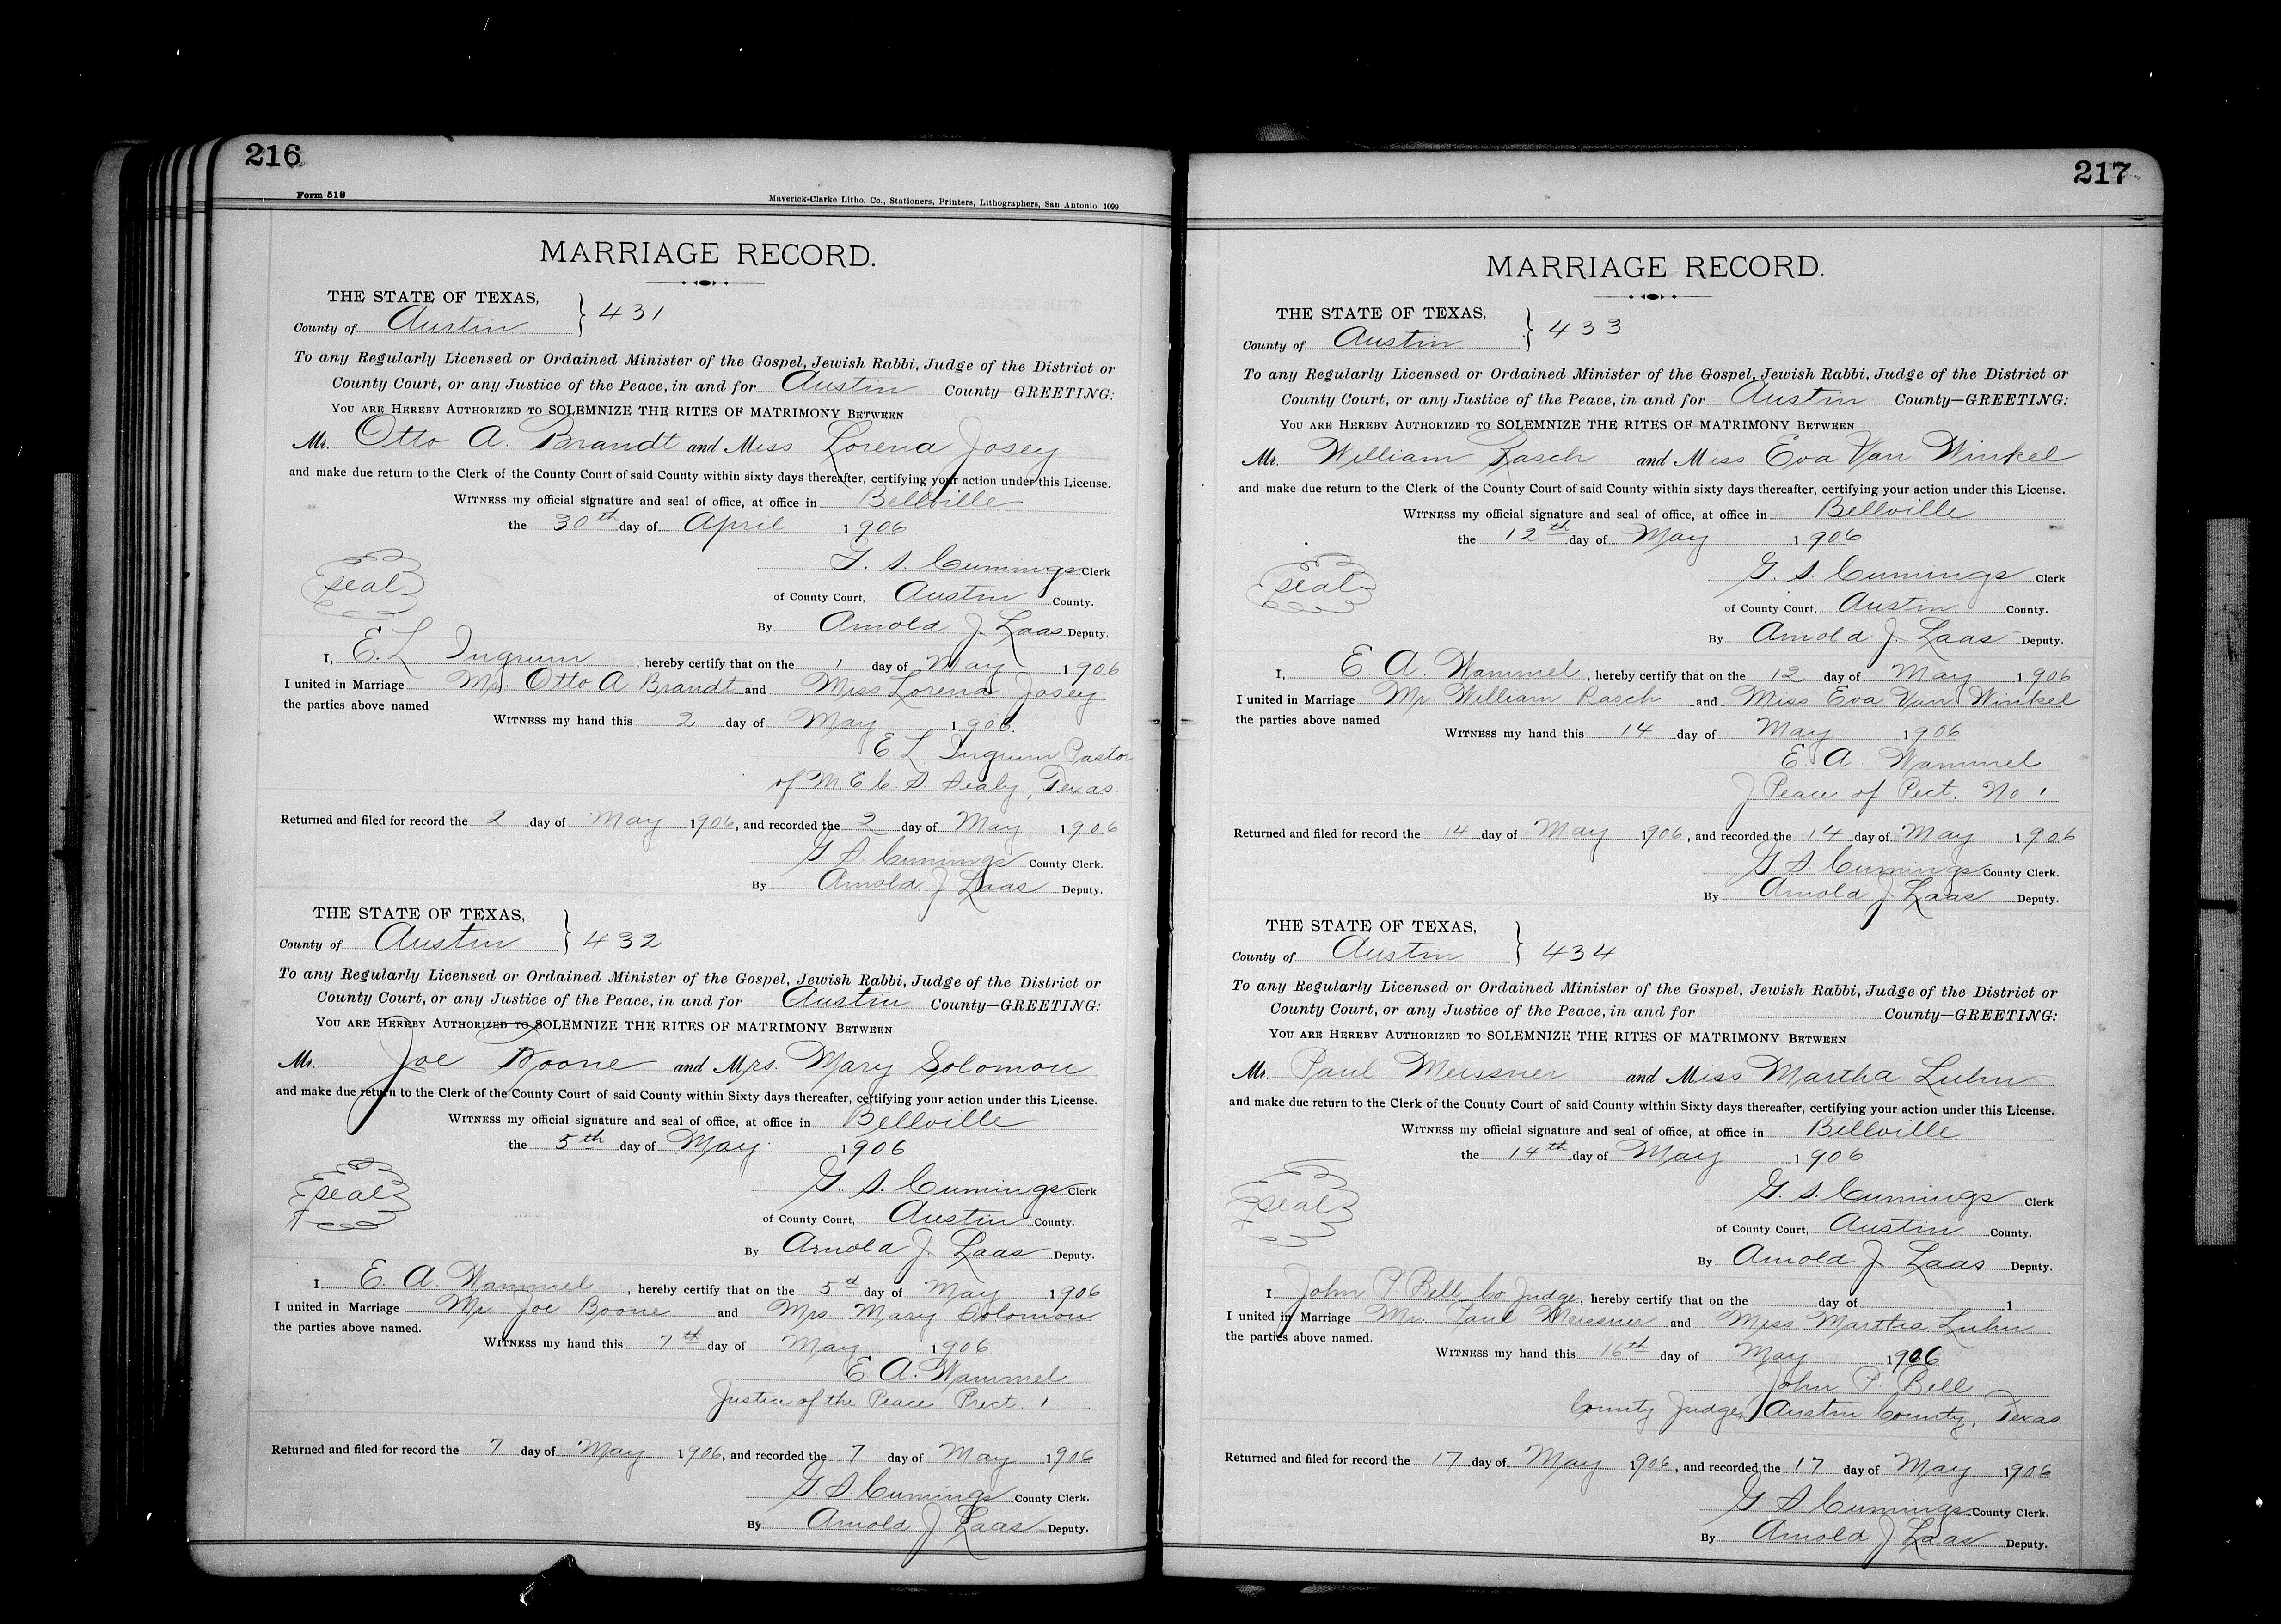 216
Form 518
Maverick-Clarke Litho. Co., Stationers, Printers, Lithographers, San Antonio. 1099
MARRIAGE RECORD.
THE STATE OF TEXAS,
County of Austin } 431
To any Regularly Licensed or Ordained Minister of the Gospel, Jewish Rabbi, Judge of the District or
County Court, or any Justice of the Peace, in and for Austin County—GREETING:
YOU ARE HEREBY AUTHORIZED TO SOLEMNIZE THE RITES OF MATRIMONY BETWEEN
Mr. Otto A. Brandt and Miss Lorena Josey
and make due return to the Clerk of the County Court of said County within sixty days thereafter, certifying your action under this License.
WITNESS my official signature and seal of office, at office in Bellville
the 30th day of April 1906
G. S. Cumings Clerk
seal
of County Court, Austin County.
By Arnold J. Laas Deputy.
I, E. L Ingrum, hereby certify that on the 1 day of May 1906
I united in Marriage Mr. Otto A Brandt and Miss Lorena Josey
the parties above named
WITNESS my hand this 2 day of May 1906.
E L. Ingrum Pastor
of M. E. C. S. Sealy, Texas.
Returned and filed for record the 2 day of May 1906, and recorded the 2 day of May 1906
G S. Cumings County Clerk.
By Arnold J Laas Deputy.
THE STATE OF TEXAS,
County of Austin } 432
To any Regularly Licensed or Ordained Minister of the Gospel, Jewish Rabbi, Judge of the District or
County Court, or any Justice of the Peace, in and for Austin County—GREETING:
YOU ARE HEREBY AUTHORIZED TO SOLEMNIZE THE RITES OF MATRIMONY BETWEEN
Mr. Joe Boone and Mrs. Mary Solomon
and make due return to the Clerk of the County Court of said County within Sixty days thereafter, certifying your action under this License.
WITNESS my official signature and seal of office, at office in Bellville
the 5th day of May 1906
G. S. Cumings Clerk
seal
of County Court, Austin County.
By Arnold J. Laas Deputy.
I E. A. Wammel, hereby certify that on the 5th day of May 1906
I united in Marriage Mr Joe Boone and Mrs Mary Solomon
the parties above named.
WITNESS my hand this 7th day of May 1906
E A. Wammel
Justice of the Peace Prect. 1
Returned and filed for record the 7 day of May 1906, and recorded the 7 day of May 1906
G. S. Cumings County Clerk.
By Arnold J. Laas Deputy.
217
MARRIAGE RECORD.
THE STATE OF TEXAS,
County of Austin } 433
To any Regularly Licensed or Ordained Minister of the Gospel, Jewish Rabbi, Judge of the District or
County Court, or any Justice of the Peace, in and for Austin County—GREETING:
YOU ARE HEREBY AUTHORIZED TO SOLEMNIZE THE RITES OF MATRIMONY BETWEEN
Mr. William Rasch and Miss Eva Van Winkel
and make due return to the Clerk of the County Court of said County within sixty days thereafter, certifying your action under this License.
WITNESS my official signature and seal of office, at office in Bellville
the 12th day of May 1906
G. S Cumings Clerk
seal
of County Court, Austin County.
By Arnold J. Laas Deputy.
I, E A. Wammel, hereby certify that on the 12 day of May 1906
I united in Marriage Mr William Rasch and Miss Eva Van Winkel
the parties above named
WITNESS my hand this 14 day of May 1906
E. A. Wammel
J Peace of Pect. No 1
Returned and filed for record the 14 day of May 1906, and recorded the 14 day of May 1906
G S Cumings County Clerk.
By Arnold J. Laas Deputy.
THE STATE OF TEXAS,
County of Austin } 434
To any Regularly Licensed or Ordained Minister of the Gospel, Jewish Rabbi, Judge of the District or
County Court, or any Justice of the Peace, in and for County—GREETING:
YOU ARE HEREBY AUTHORIZED TO SOLEMNIZE THE RITES OF MATRIMONY BETWEEN
Mr. Paul Meissner and Miss Martha Luhn
and make due return to the Clerk of the County Court of said County within Sixty days thereafter, certifying your action under this License.
WITNESS my official signature and seal of office, at office in Bellville
the 14th day of May 1906
G. S. Cumings Clerk
seal
of County Court, Austin County.
By Arnold J Laas Deputy.
I John P. Bell Co. Judge, hereby certify that on the day of 1
I united in Marriage Mr. Paul Meissner and Miss Martha Luhn
the parties above named.
WITNESS my hand this 16th day of May 1906
John P. Bell
County Judge, Austin County, Texas
Returned and filed for record the 17 day of May 1906, and recorded the 17 day of May 1906
G S Cumings County Clerk.
By Arnold J. Laas Deputy.